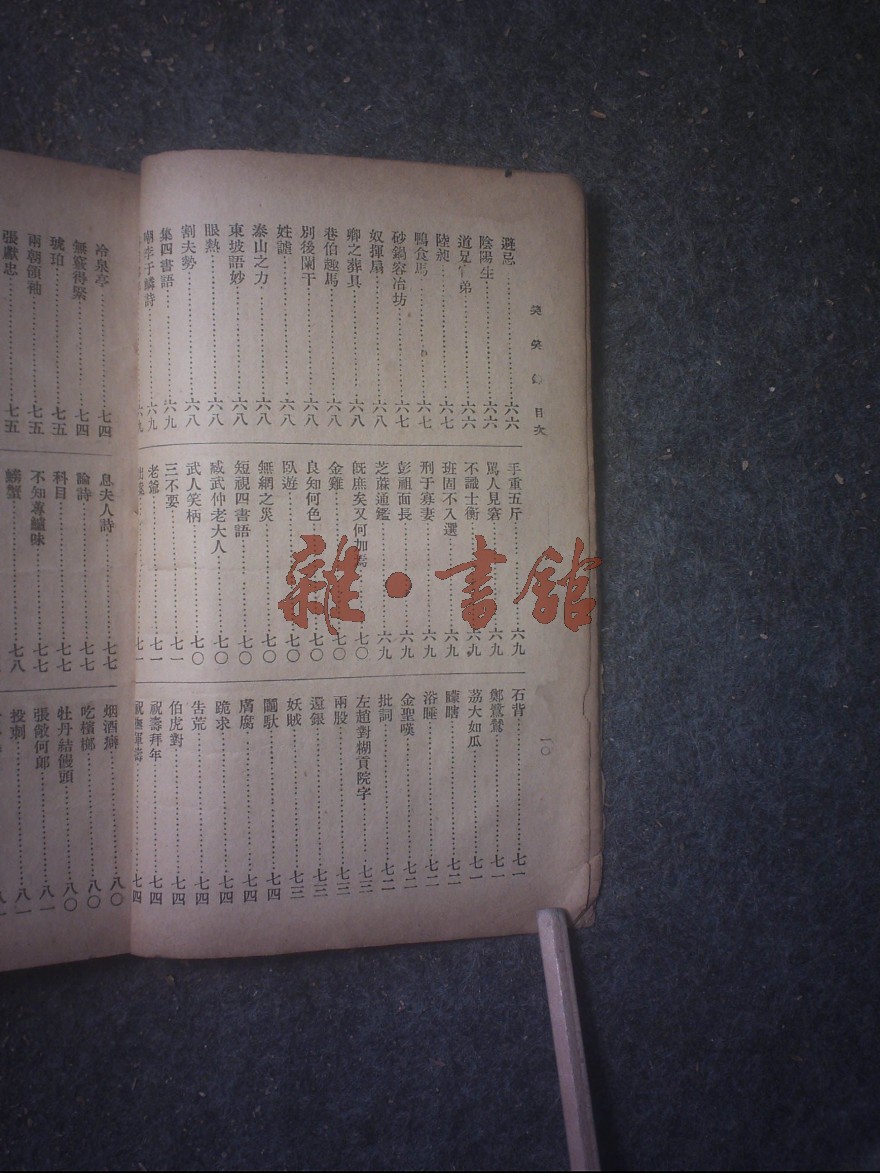 笑笑 目次
避忌……六六
陰陽生……六六
道兄 弟……六六
陸昶……六七
鴨食馬……六七
砂鍋容冶坊……六七
奴揮扇……六八
卿之葬具……六八
巷伯趣馬……六八
別後闌干……六八
姓謔……六八
泰山之力……六八
東坡語妙……六八
眼熱……六八
割夫勢……六八
集四書語……六九
嘲李于鱗詩……六九
手重五斤……六九
罵人見窘……六九
不識士衡……六九
班固不入選……六九
刑于寡妻……六九
彭祖面長……六九
芝蔴通鑑……六九
既庶矣又何加焉……七〇
金雞……七〇
良知何色……七〇
臥遊……七〇
無網之災……七〇
短視四書語……七〇
臧武仲老大人……七〇
武人笑柄……七〇
三不要……七一
老爺……七一
……七一
石背……七一
鄭鷺鷥……七一
荔大如瓜……七一
矇瞎……七二
浴唾……七二
金聖嘆……七二
批詞……七二
左趙對糊貢院字……七三
兩股……七三
還銀……七三
妖賊……七三
鬭馱……七四
腐……七四
跪求……七四
告荒……七四
伯虎對……七四
祝壽拜年……七四
祝 軍壽……七四
一〇
冷泉亭……七四
無竅得緊……七四
琥珀……七五
兩朝領袖……七五
張獻忠……七五
息夫人詩……七七
論詩……七七
科目……七七
不知尊鱸味……七七
螃蟹……七八
烟酒癖……八〇
吃檳榔……八〇
牡丹結饅頭……八〇
張敞何郎……八一
投刺……八一
雜·書館